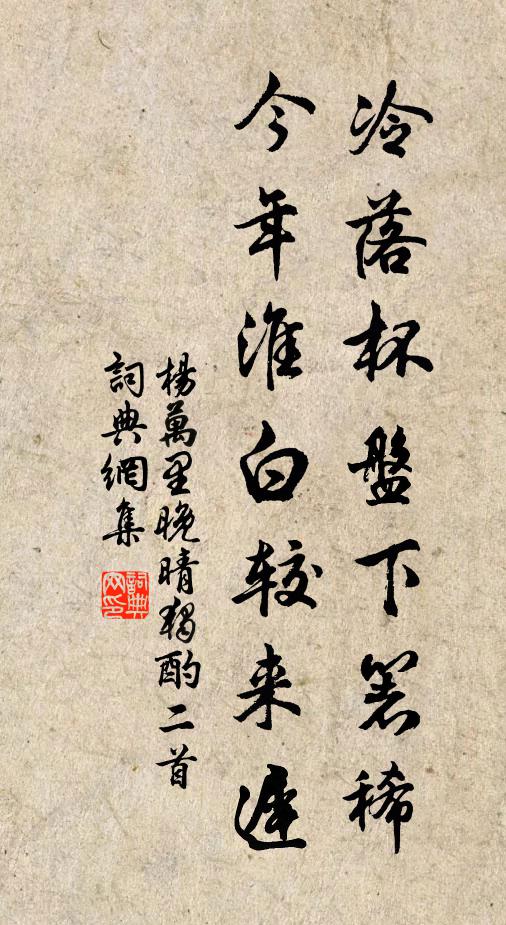 冷落杯盤下箸稀
今年淮白较来遲
楊萬里晚晴獨酌二首
詞典網集
詞典
网印